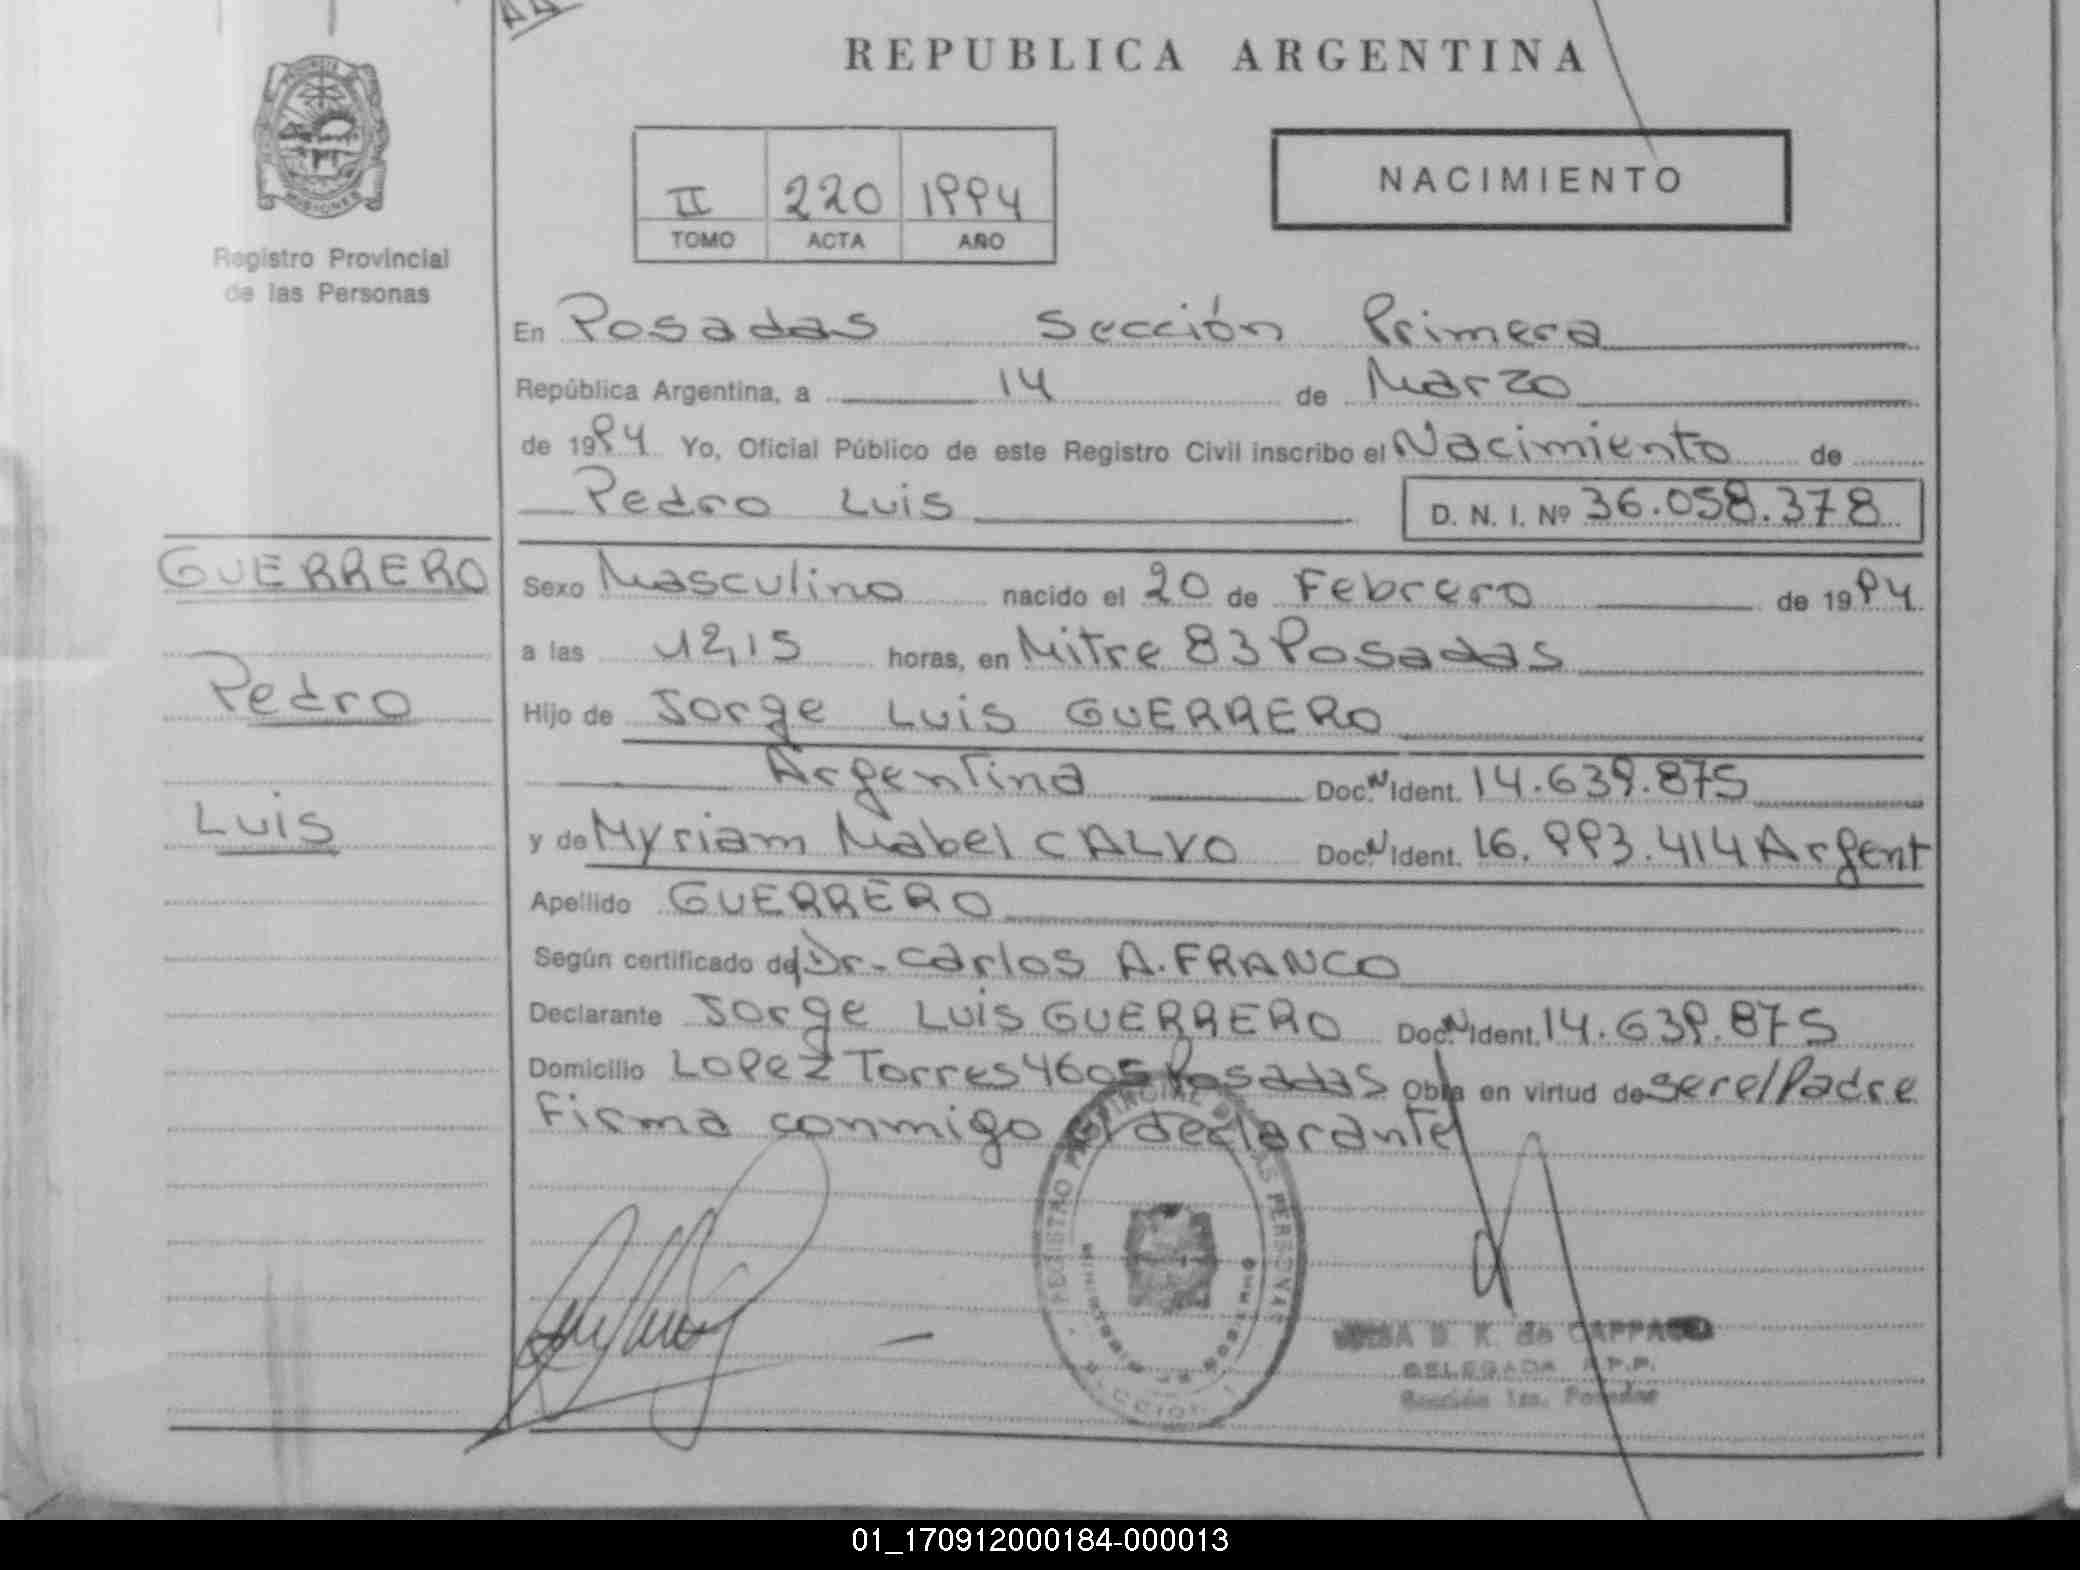 REPUBLICA ARGENTINA
PROVINCIA
MISIONES
Registro Provincial
de las Personas
II 220 1994
TOMO ACTA AÑO
NACIMIENTO
En Posadas Sección Primera
República Argentina, a 14 de Marzo
de 1994 Yo, Oficial Público de este Registro Civil inscribo el Nacimiento de
Pedro Luis D. N. I. Nº 36.058.378
GUERRERO
Pedro
Luis
Sexo Masculino nacido el 20 de Febrero de 1994
a las 12,15 horas, en Mitre 83 Posadas
Hijo de Jorge Luis GUERRERO
Argentina Doc. N Ident. 14.639.875
y de Myriam Mabel CALVO Doc. N Ident. 16.993.414 Argent
Apellido GUERRERO
Según certificado del Dr. Carlos A. FRANCO
Declarante Jorge Luis GUERRERO Doc. N Ident. 14.639.875
Domicilio Lopez Torres 4605 Posadas Obra en virtud de ser el Padre
Firma conmigo el declarante
REGISTRO PROVINCIAL DE LAS PERSONAS
D. K. de CAPPA
DELEGADA R.P.P.
Sección 1ra. Posadas
01_170912000184-000013